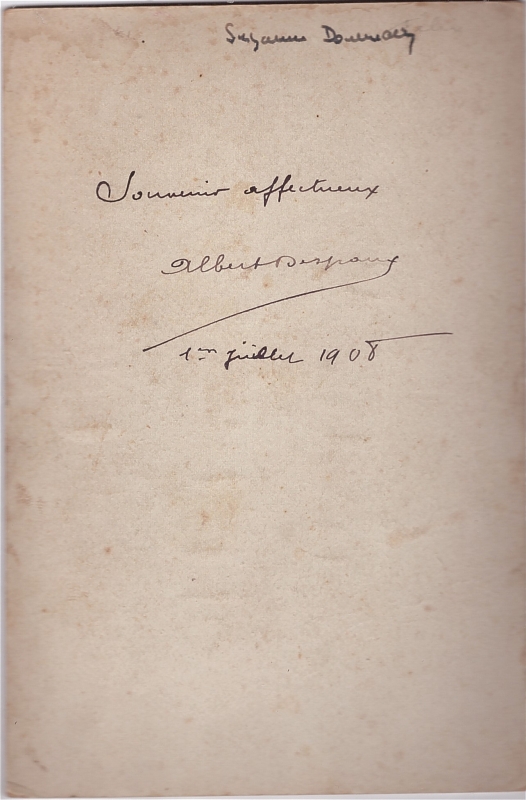 Suzanne
Souvenir affectueux
Albert Despaux
1er juillet 1908